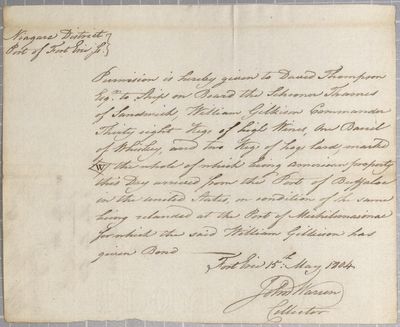 Niagara District
Port of Fort Erie Ss.
Permission is hereby given to David Thompson
Esqr. to Ship on Board the Schooner Thames
of Sandwich, William Gilkison Commander
Thirty eight Kegs of high Wines, One Barrel
of Whiskey, and two Kegs of hogs lard marked
W the whole of which being american property
this Day arrived from the Port of Buffaloe
in the united States, on condition of the same
being relanded at the Port of Michilimacinac
for which the said William Gilkison has
given Bond
Fort Erie 15th. May 1804
John Warren
Collector